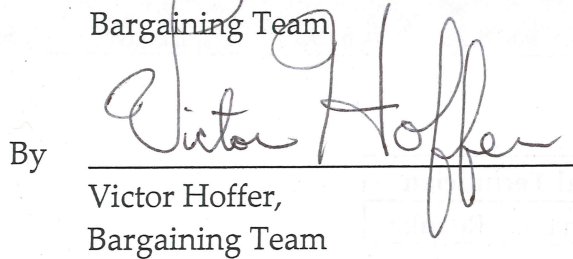 Bargaining Team
Victor Hoffer
By
Victor Hoffer,
Bargaining Team